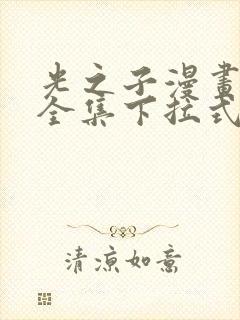 光之子漫畫
全集下拉式
清涼如意